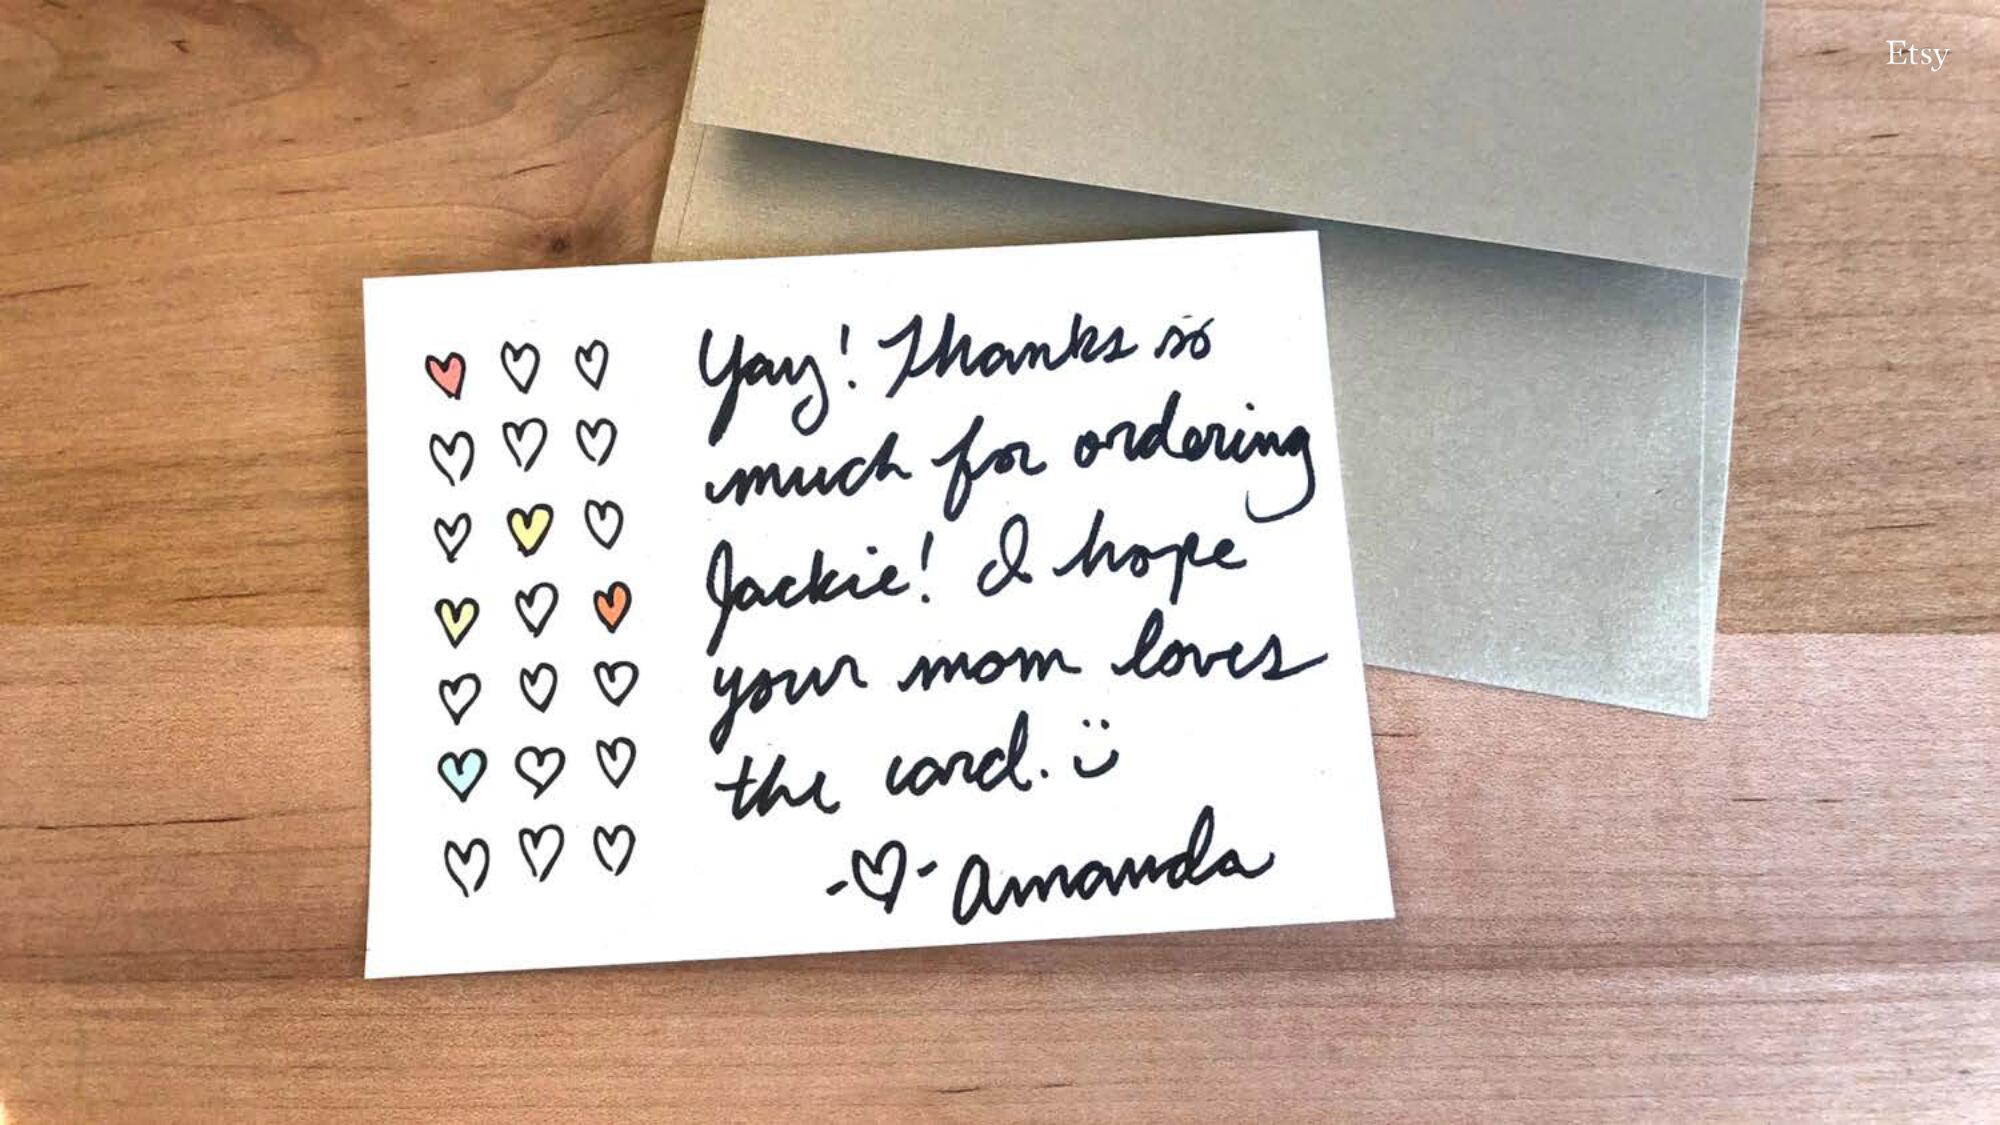 Etsy
Yay! Thanks so
much for ordering
Jackie! I hope
your mom loves
the card. :)
-♡- Amanda